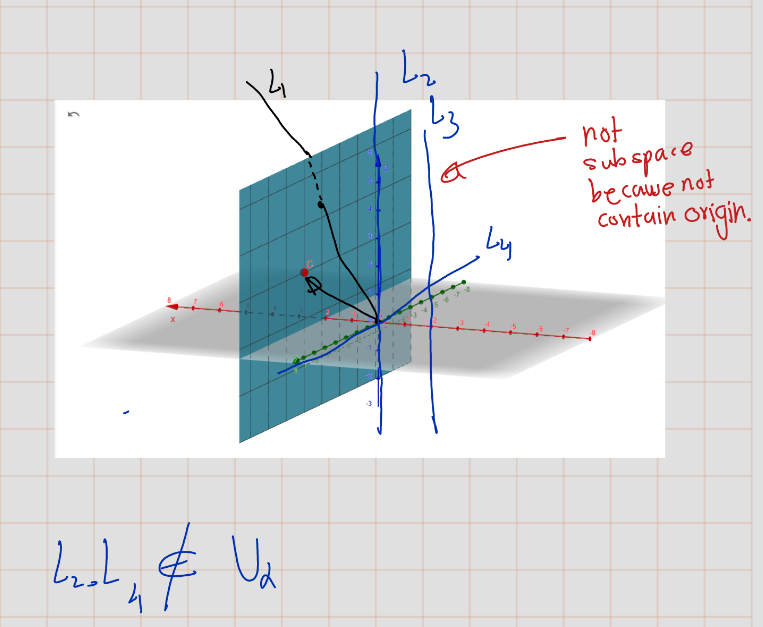 L₁
L₂
L₃
not
subspace
because not
contain origin.
L₄
C
8 7 6
x
-3 -4 -5 -6 -7 -8
-3
L₂, L₄ ∉ U₂